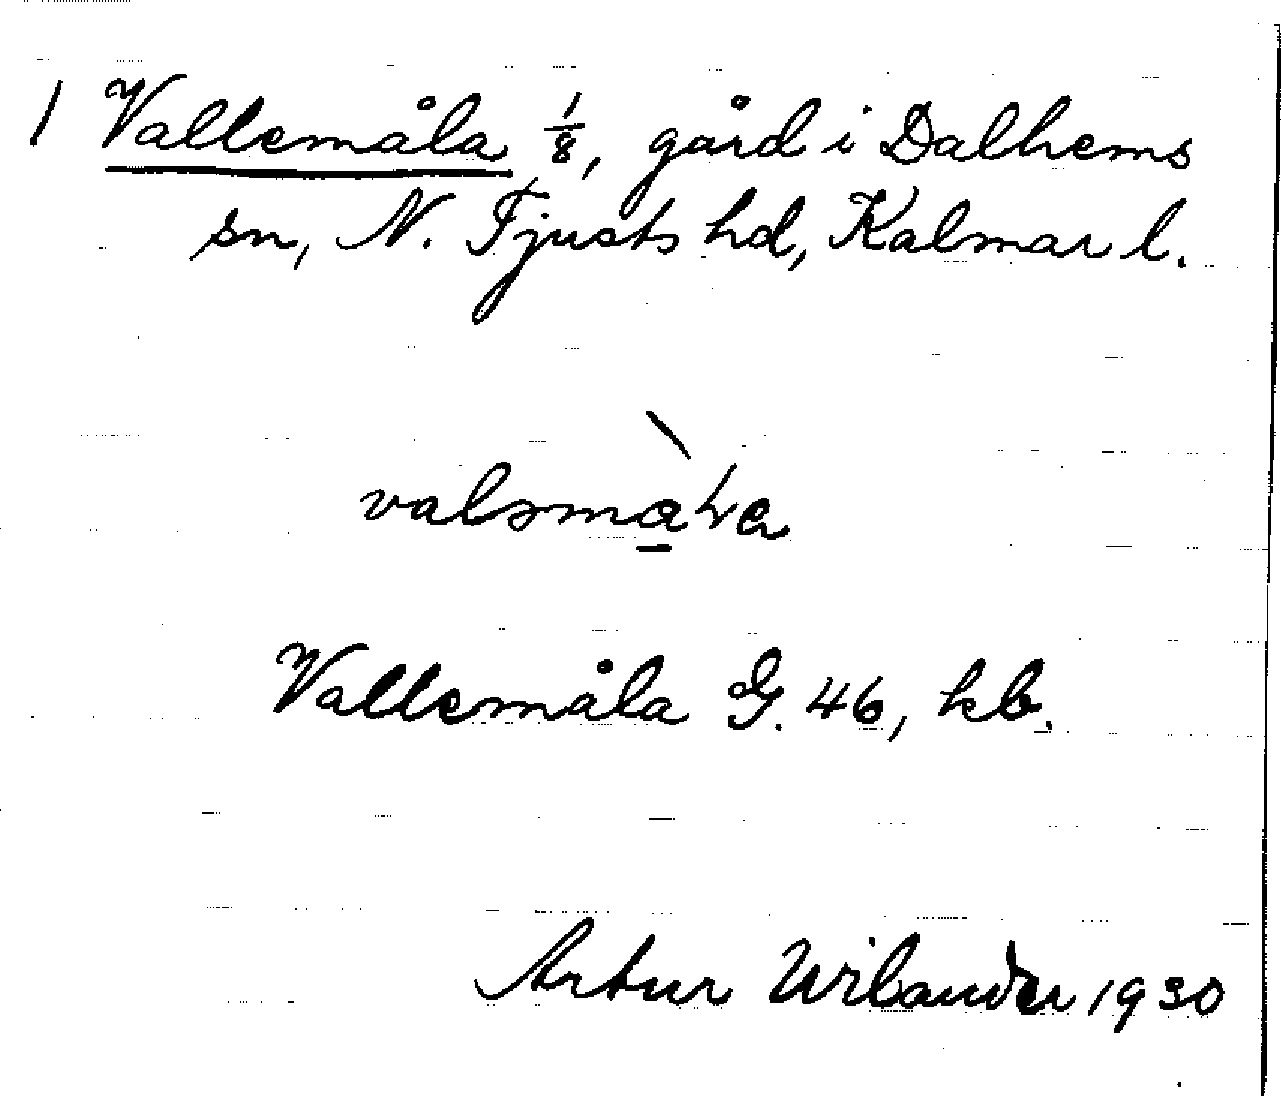 1 Vallemåla 1/8, gård i Dalhems
sn, N. Tjusts hd, Kalmar l.
Vallemåla G. 46, kb.
Artur Wilander 1930